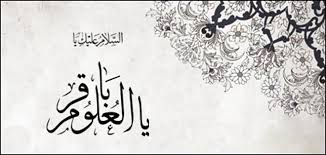 السلام علیک یا
یا باقر العلوم